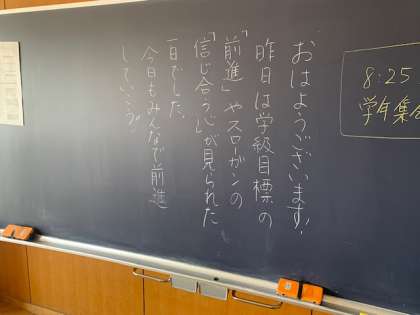 おはようございます!
昨日は学級目標の
「前進」やスローガンの
「信じ合う心」が見られた
一日でした。
今日もみんなで前進
していこう!
8:25
学年集会